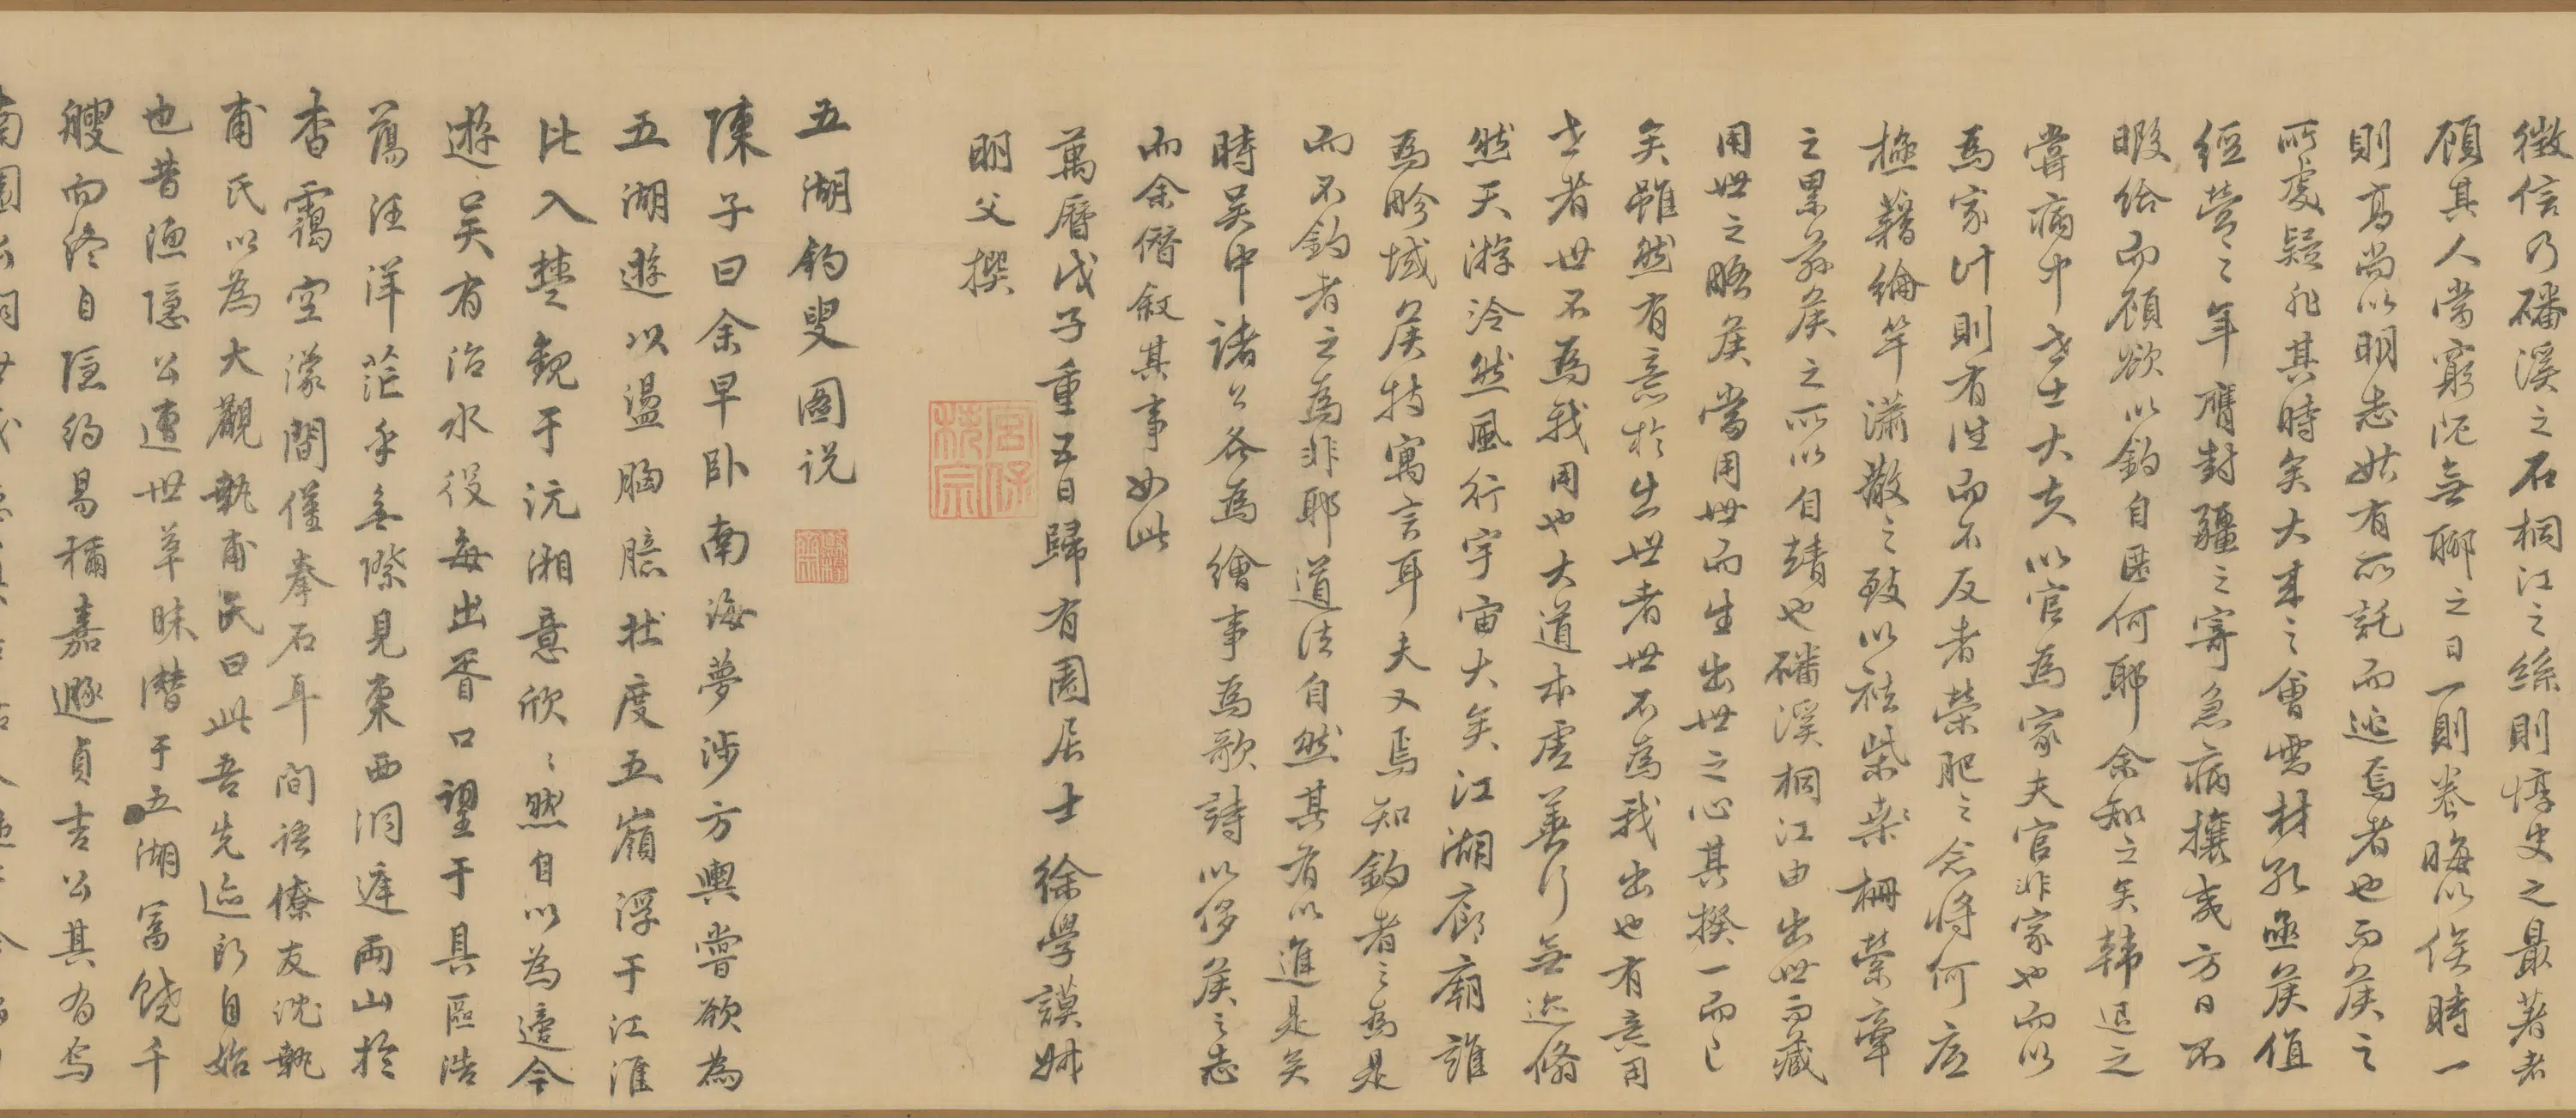 徵信乃磻溪之石桐江之絲則惇史之最著者
顧其人當窮阨無聊之日一則養晦以俟時一
則高尚以明志姑有所託而逃焉者也而侯之
所處疑非其時矣大來之會需材孔亟侯值
經營之年膺封疆之寄急病攘夷方日不
暇給而顧欲以釣自匿何耶余知之矣韓退之
嘗病中世士大夫以官為家夫官非家也而以
為家計則有往而不反者榮肥之念將何底
極藉綸竿瀟散之致以祛柴柵縈牽
之累茲侯之所以自靖也磻溪桐江由出世而藏
用世之略侯當用世而生出世之心其揆一而已
矣雖然有意於出世者世不為我出也有意用
世者世不為我用也大道本虛善行無迹翛
然天游泠然風行宇宙大矣江湖廊廟誰
為畛域侯特寓言耳夫又焉知釣者之為是
而不釣者之為非耶道法自然其有以進是矣
時吳中諸公各為繪事為歌詩以侈侯之志
而余僭敘其事如此
萬曆戊子重五日歸有園居士徐學謨
明父撰
宮保
秩宗
五湖釣叟圖說
陳子曰余早臥南海夢涉方輿嘗欲為
五湖遊以盪胸臆壯度五嶺浮于江淮
比入楚觀于沅湘意欣欣然自以為適今
遊吳有治水役每出胥口望于具區浩
蕩汪洋茫乎無際見東西洞庭兩山於
杳靄空濛間僅拳石耳間語僚友沈執
甫氏以為大觀執甫氏曰此吾先迹所自始
也昔漁隱公遭世草昧潛于五湖富饒千
艘而終自隱約易稱嘉遯貞吉公其有焉